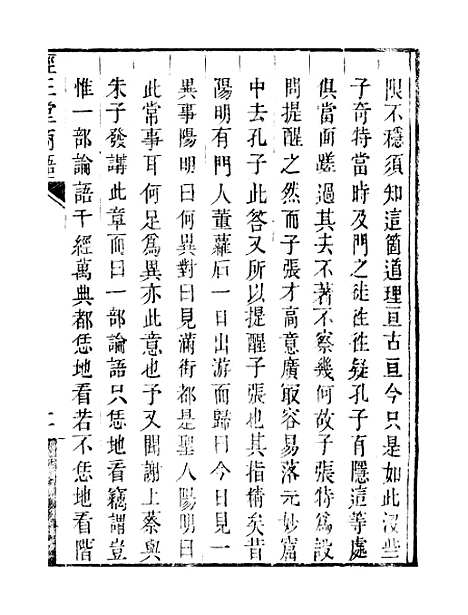 限不穩須知這箇道理亘古亘今只是如此沒些
子奇特當時及門之徒徃徃疑孔子有隱這等處
俱當面蹉過其去不著不察幾何故子張特爲設
問提醒之然而子張才高意廣取容易落元妙窩
中去孔子此答又所以提醒子張也其指情矣昔
陽明有門人董蘿石一日出游而歸曰今日見一
異事陽明曰何異對曰見滿街都是聖人陽明曰
此常事耳何足爲異亦此意也予又聞謝上蔡與
朱子發講此章而曰一部論語只恁地看竊謂豈
惟一部論語千經萬典都恁地看若不恁地看階
堂商語
二